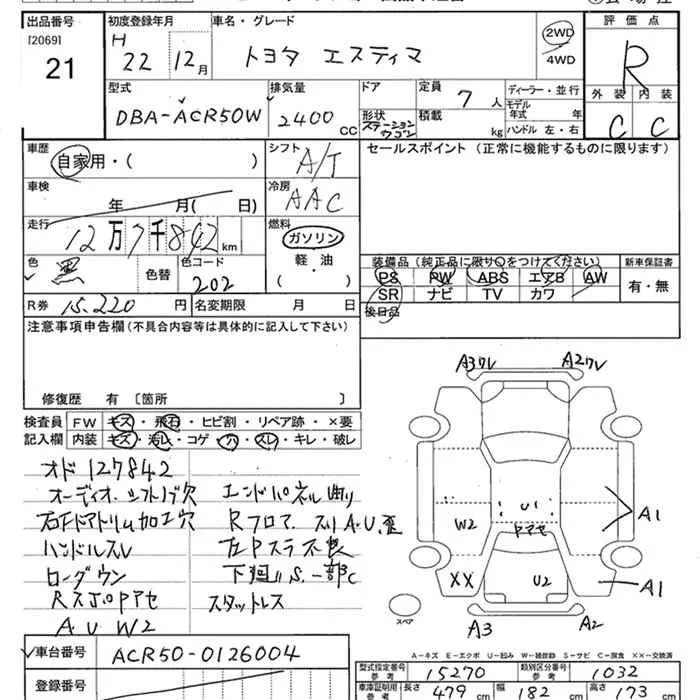 出品番号 初度登録年月 車名・グレード 評価点
[2069] H
21 22 12月 トヨタ エスティマ 2WD 4WD R
型式 排気量 ドア 定員 7人 ディーラー・並行 外装 内装
DBA-ACR50W 2400 CC 形状 ステーションワゴン 積載 kg モデル年式 年 ハンドル 左・右 C C
車歴 シフト セールスポイント (正常に機能するものに限ります)
自家用・( ) A/T
車検 冷房
年 月( 日) AAC
走行 燃料
12万7千842km ガソリン
色 色替 色コード 軽・油 装備品(純正品に限り○をつけてください) 新車保証書
黒 202 ( ) PS PW ABS エアB AW 有・無
R券 15.220円 名変期限 月 日 SR ナビ TV カワ
注意事項申告欄(不具合内容等は具体的に記入して下さい) 後日品
A3ワレ A2ワレ
修復歴 有 〔箇所
検査員 FW キズ・飛石・ヒビ割・リペア跡・×要
記入欄 内装 キズ・汚レ・コゲ・穴・スレ・キレ・破レ
オド127842
オーディオ.シフトノブ穴 エンドパネル曲り
右Fドアトリム加工穴 Rフロア.スリA.U.歪
ハンドルスレ 左Pステ不良
ローダウン 下廻りS.一部C
スタットレス
A U W2
U1
ヤマセ
W2
A1
XX
U2
A1
スペア
A3 A2
A-キズ E-エクボ U-凹み W-補修跡 S-サビ C-腐食 XX-交換済
車台番号 ACR50-0126004
型式指定番号 参考 15270 類別区分番号 参考 1032
登録番号
車庫証明用 参考 長さ 479cm 幅 182cm 高さ 173cm